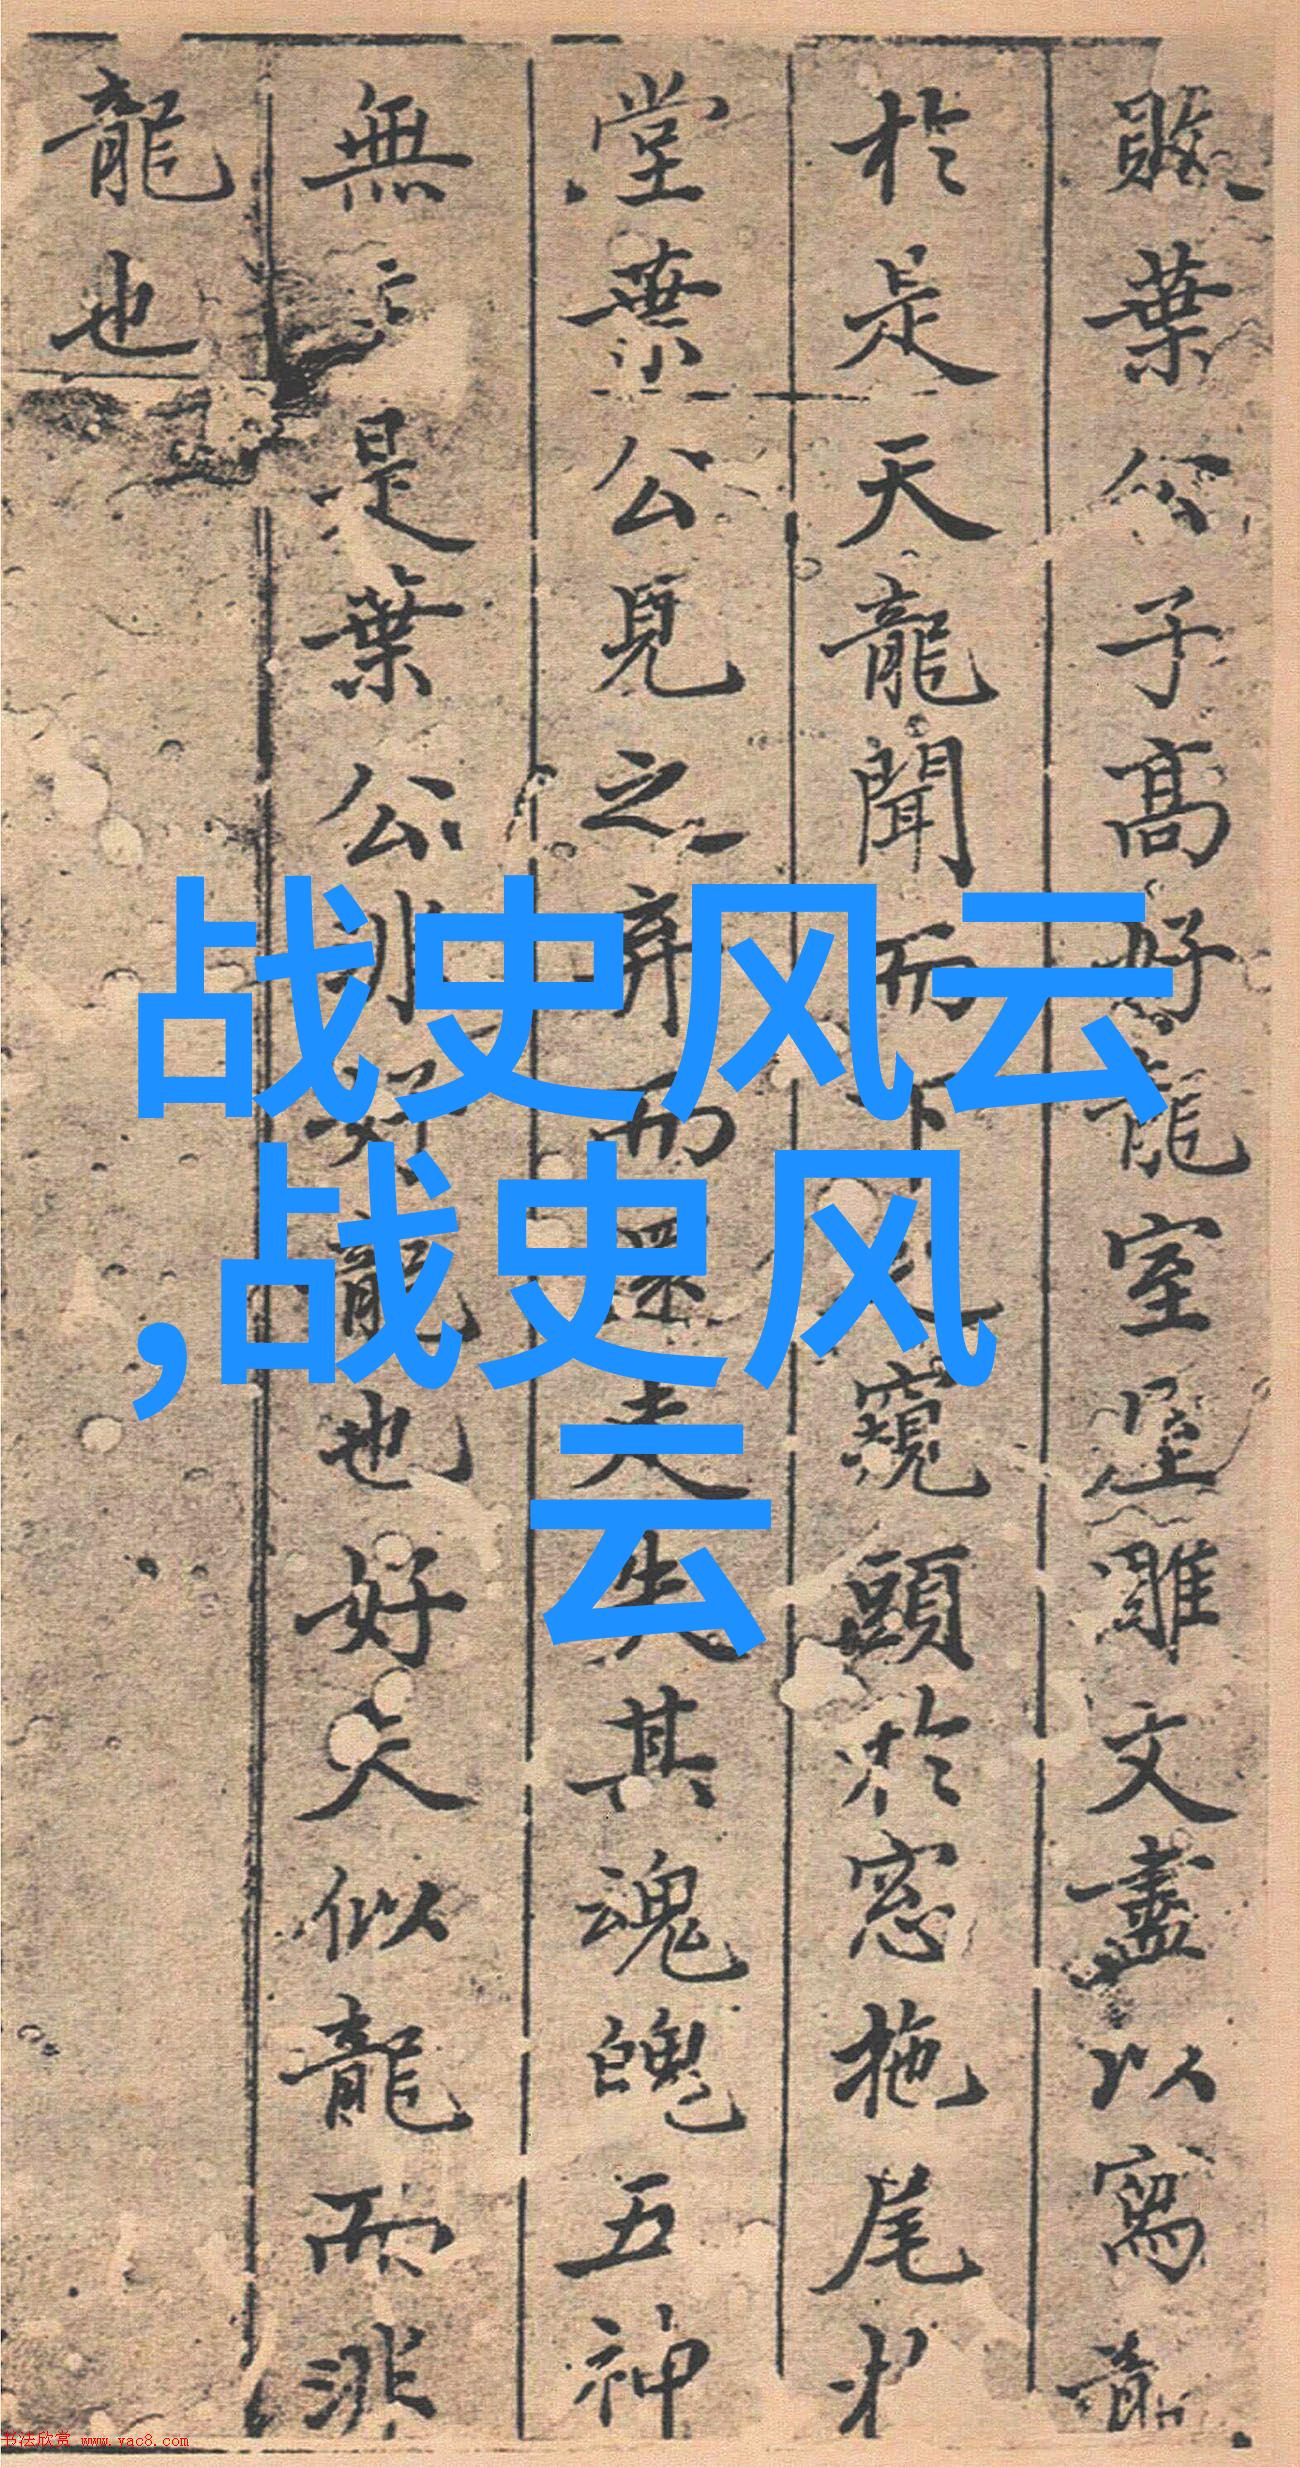 敗葉公子高好龍室屋雕文盡以寫龍
於是天龍聞而下之窺頭於窓拖尾
堂葉公見之弃而還走失其魂魄五神
無主是葉公非好龍也好夫似龍而非
龍也
战史风云
,战史风
云
书法欣赏 www.yac8.com